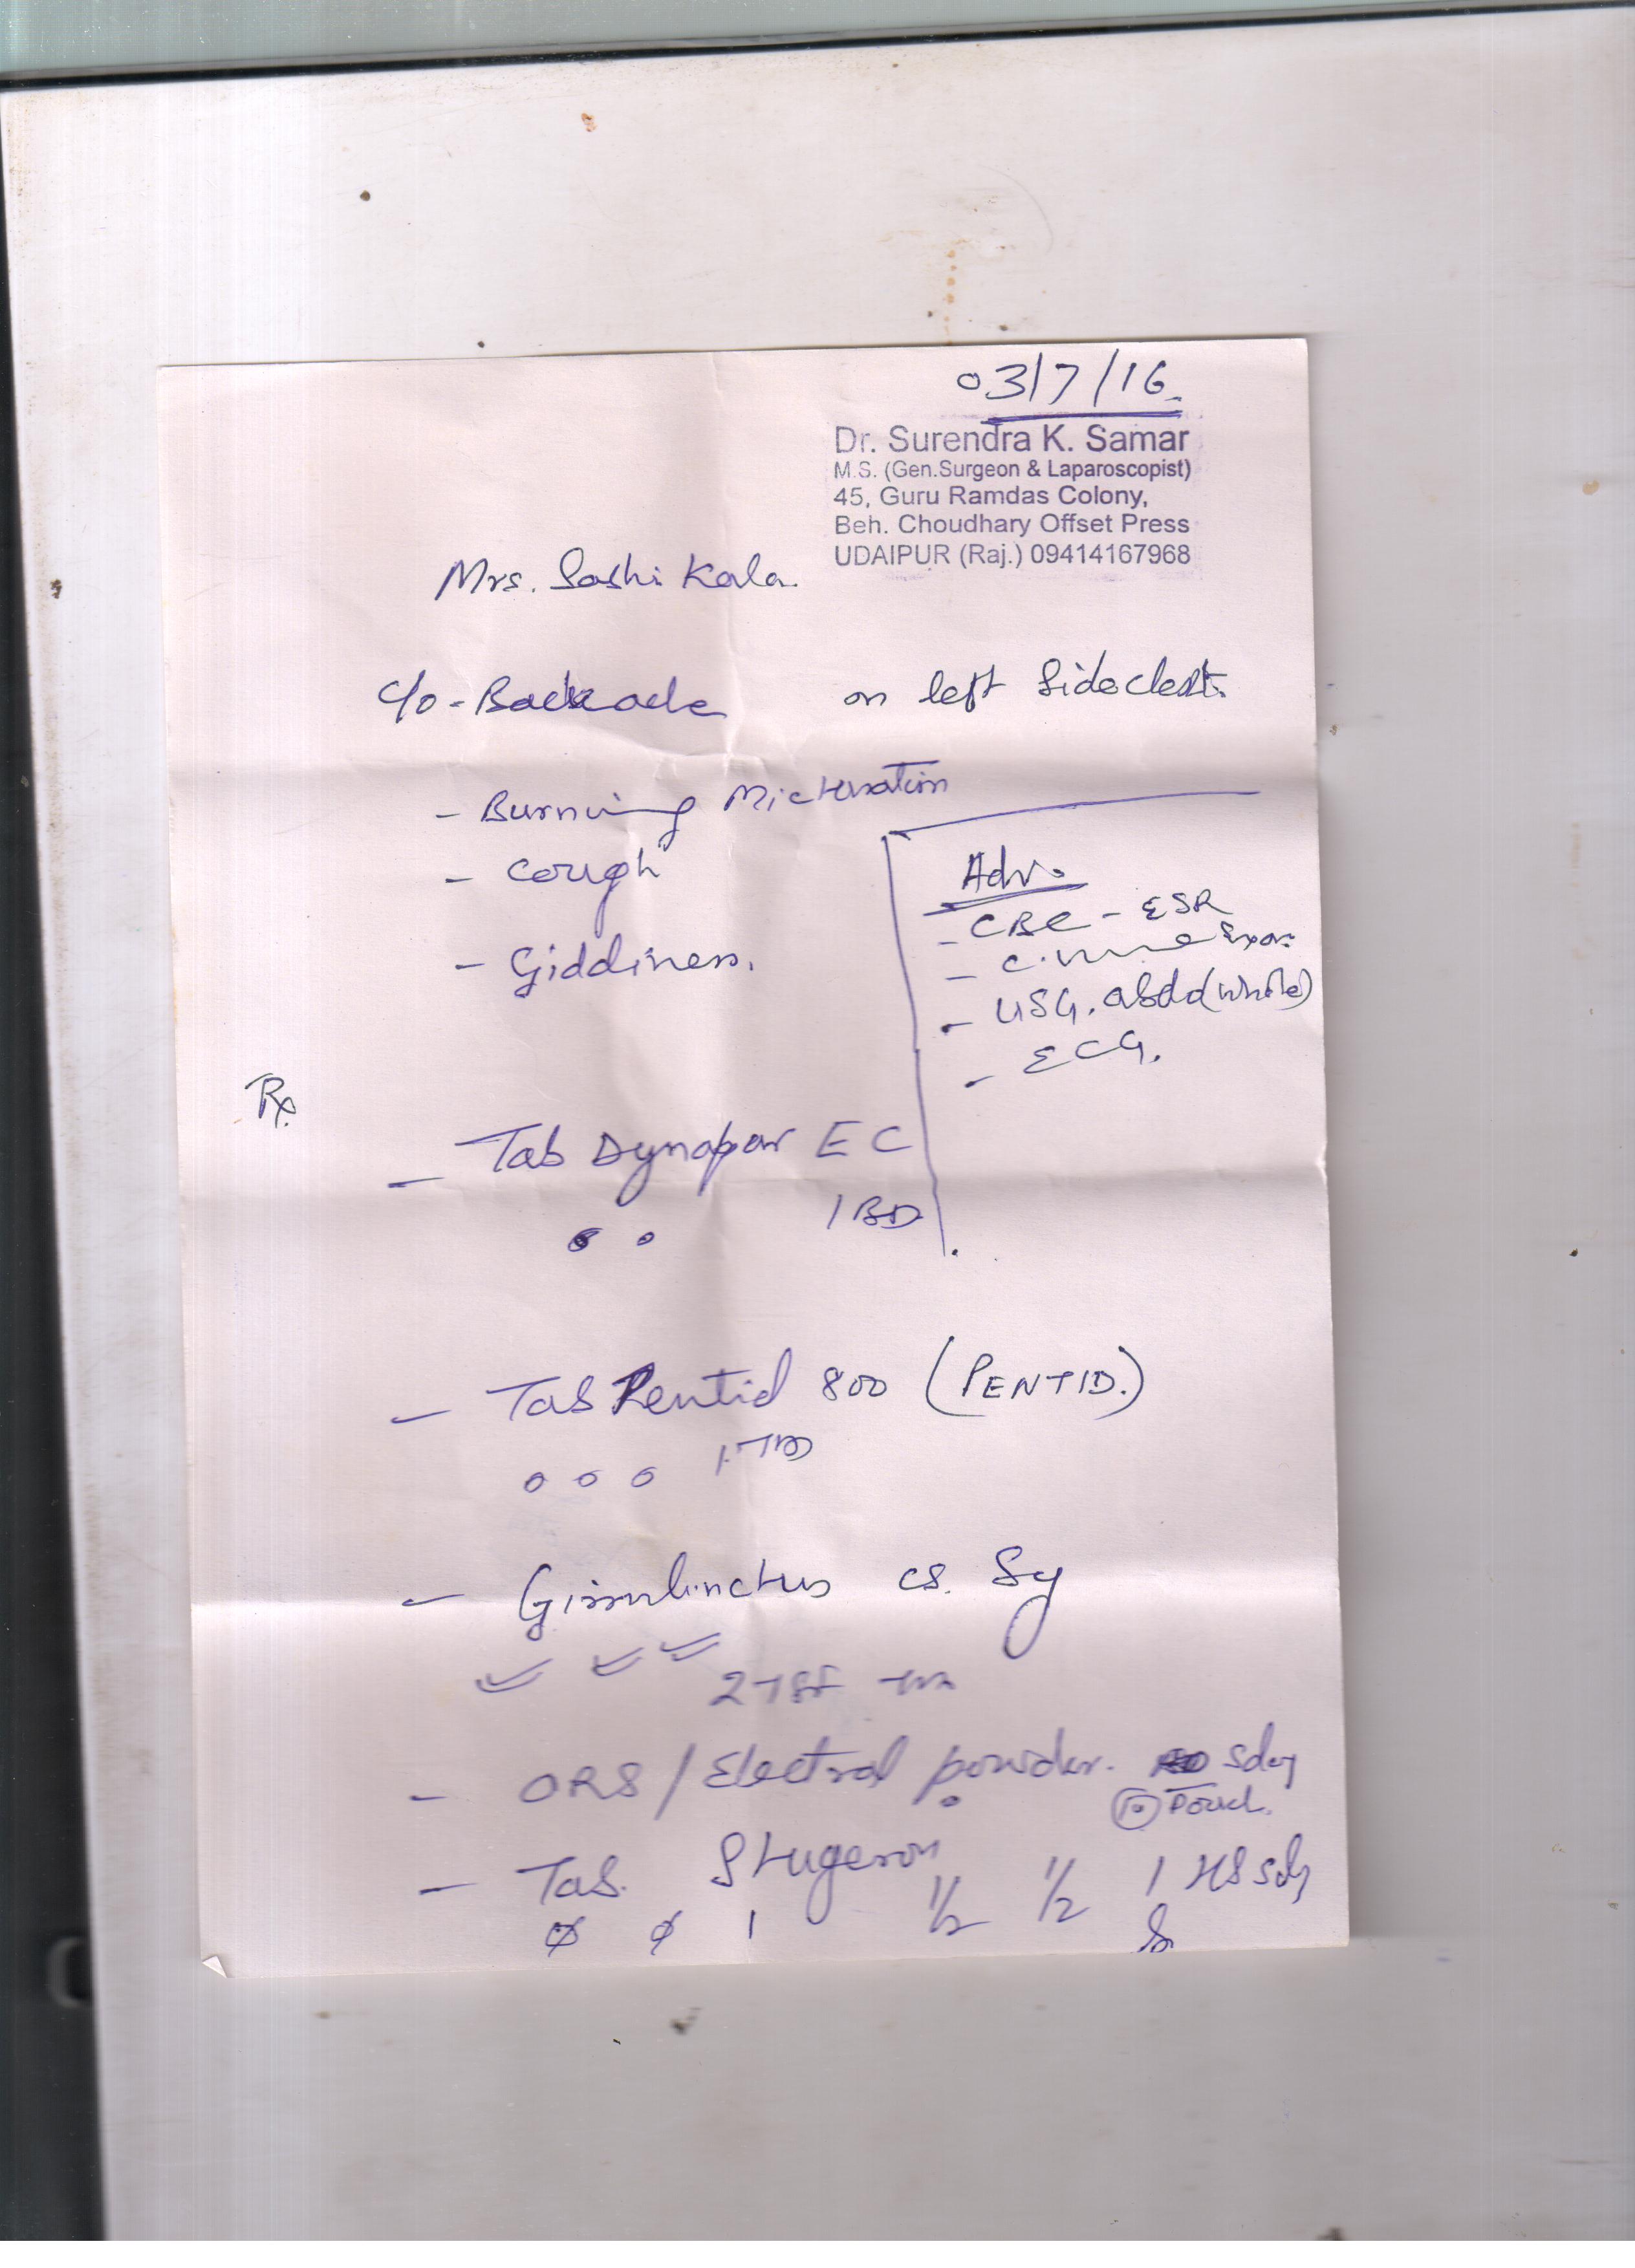 03/7/16
Dr. Surendra K. Samar
M.S. (Gen.Surgeon & Laparoscopist)
45, Guru Ramdas Colony,
Beh. Choudhary Offset Press
UDAIPUR (Raj.) 09414167968
Mrs. Sashi Kala
c/o - Backache on left side chest.
- Burning Micturation
- Cough
- Giddiness.
Adv.
- CBC - ESR
- C. urine Exam
- USG. abdd (whole)
- ECG.
Rx
- Tab Dynapar EC
1 BD
- Tab Pentid 800 (PENTID.)
1 TDS
- Grisulinctus cs. Sy
2 TSF
- ORS / Electral powder. 5day
10 Pouch.
- Tab. Stugeron 1/2 1/2 1 HS 5dy